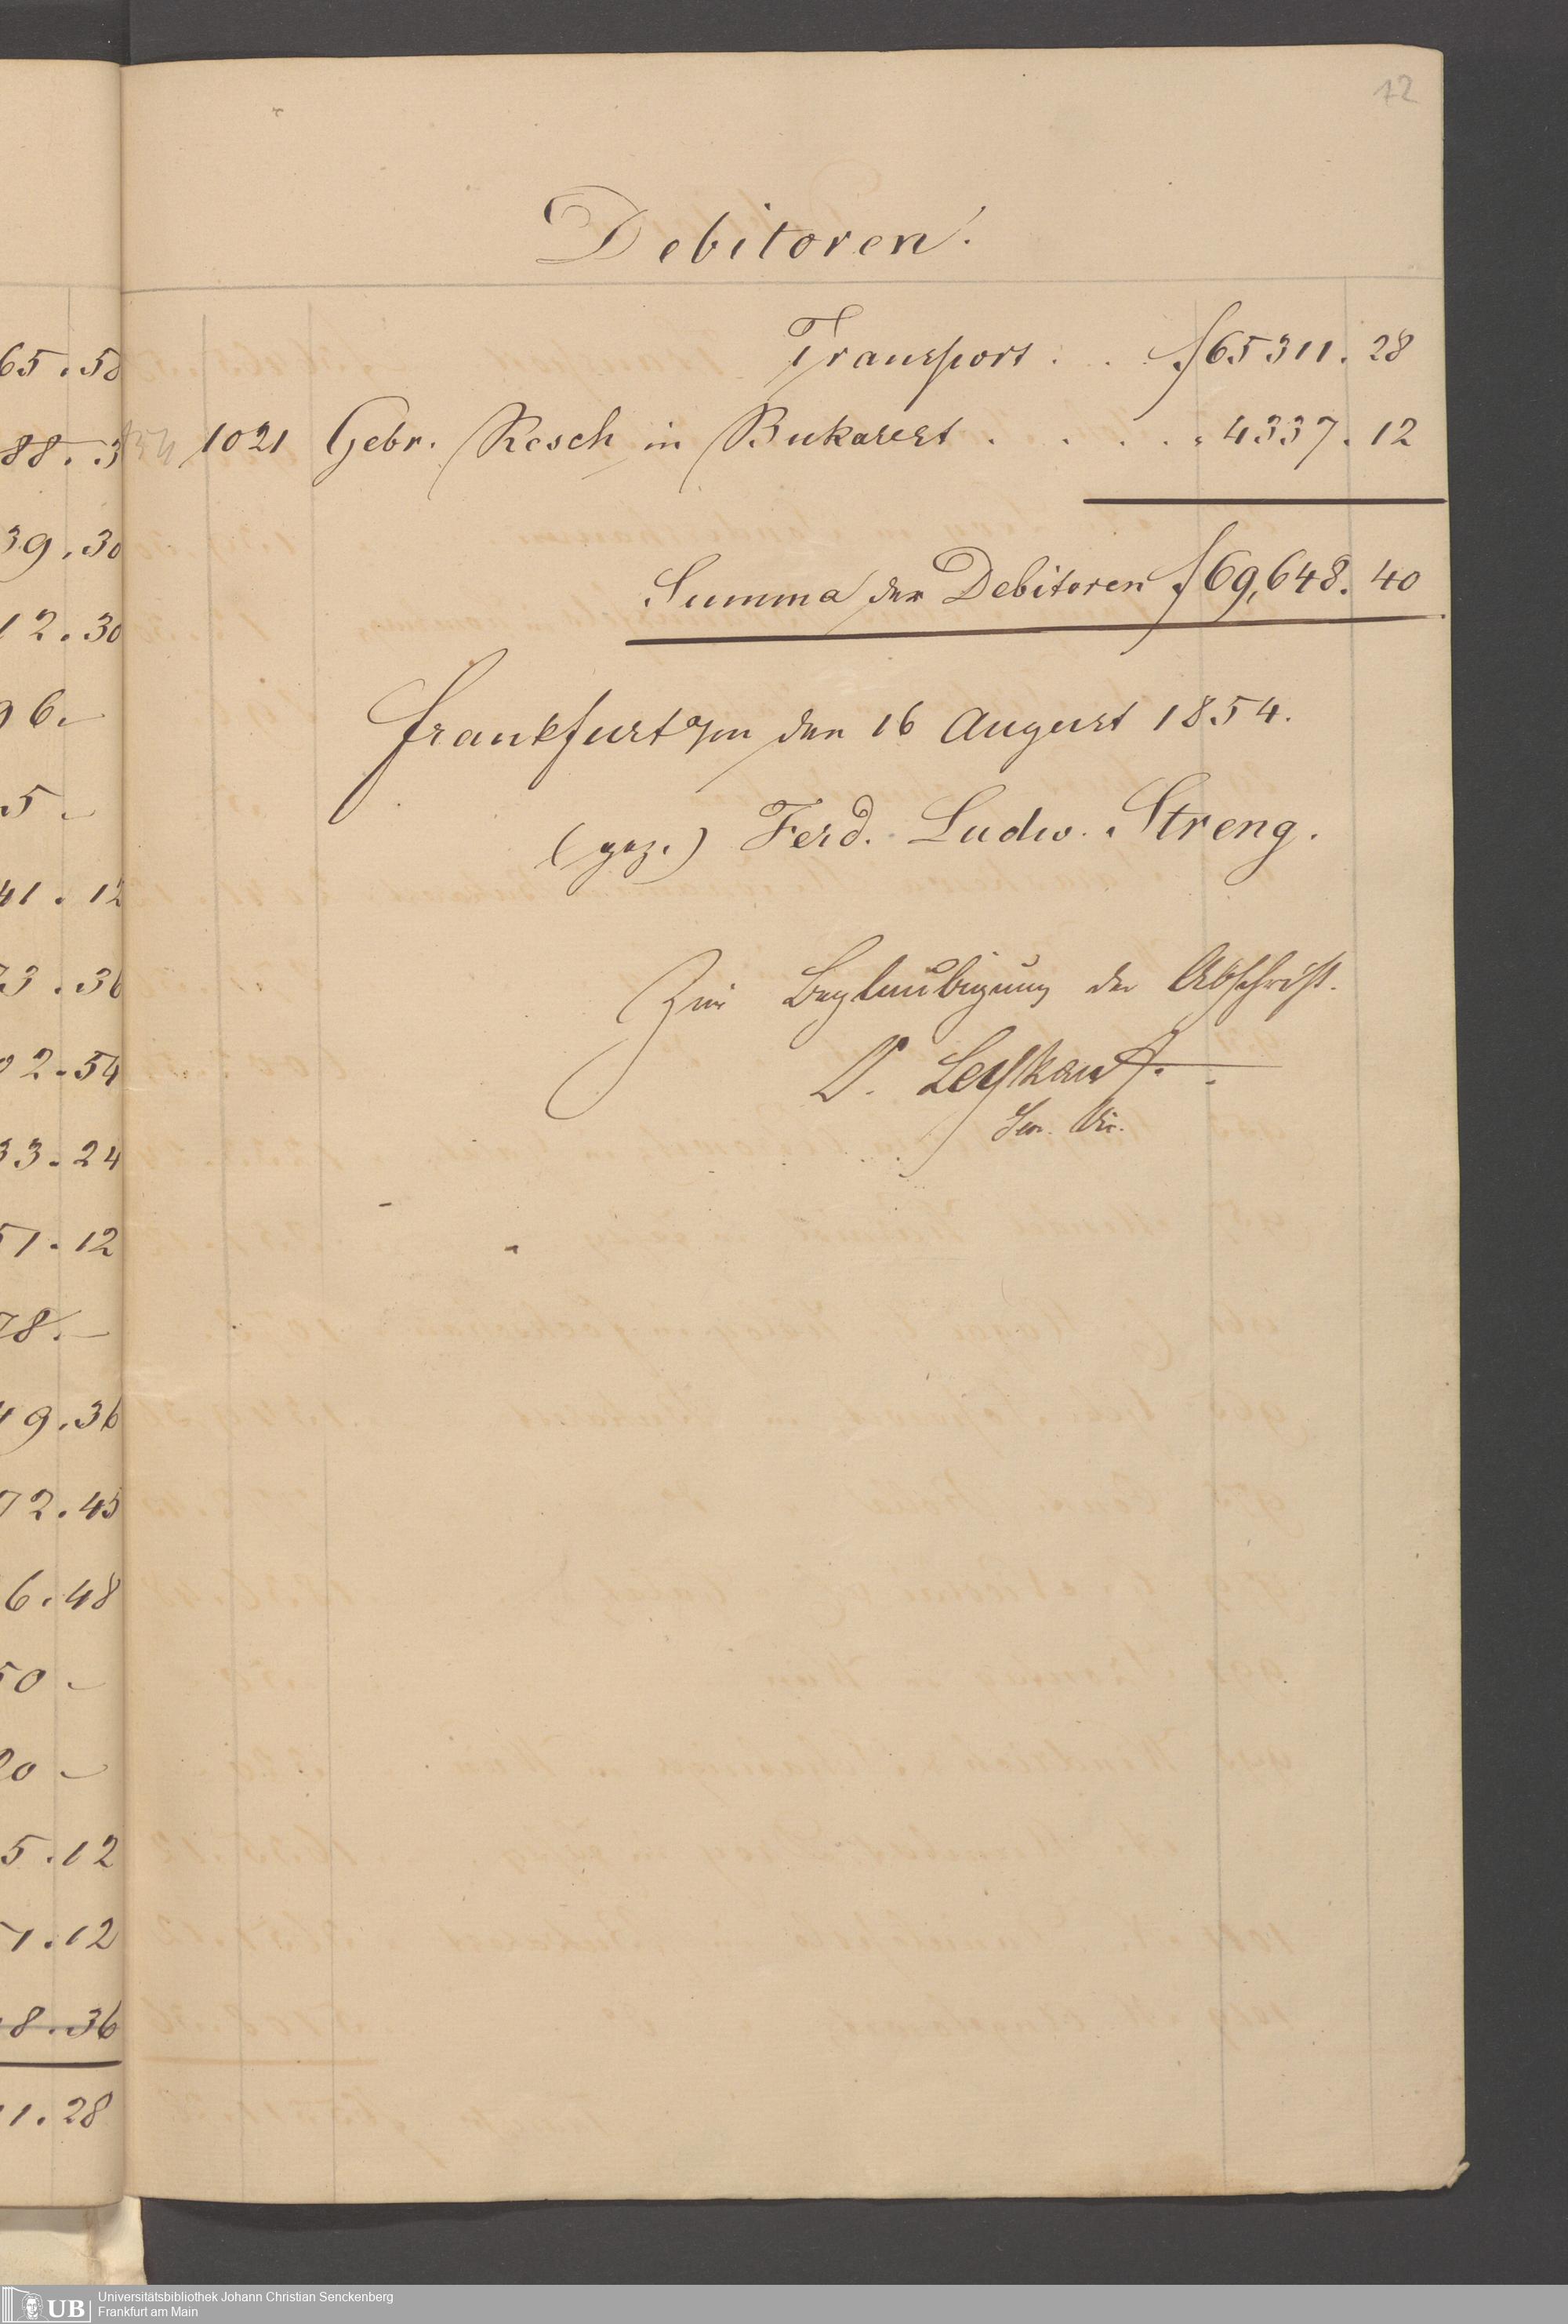 12
Debitoren.
Transport . . f 65311. 28
1021 Gebr. Resch in Bukarest . . . . „ 4337. 12
Summa der Debitoren f 69,648. 40
Frankfurt a/m den 16 August 1854.
(gez.) Ferd. Ludw. Streng.
Zur Beglaubigung der Abschrift.
65. 58
88. 3
39. 30
12. 30
96. –
5 –
41. 12
73. 36
02. 54
33. 24
51. 12
78. –
49. 36
72. 45
6. 48
50 –
20 –
5. 12
51. 12
8. 36
11. 28
UB
Universitätsbibliothek Johann Christian Senckenberg
Frankfurt am Main